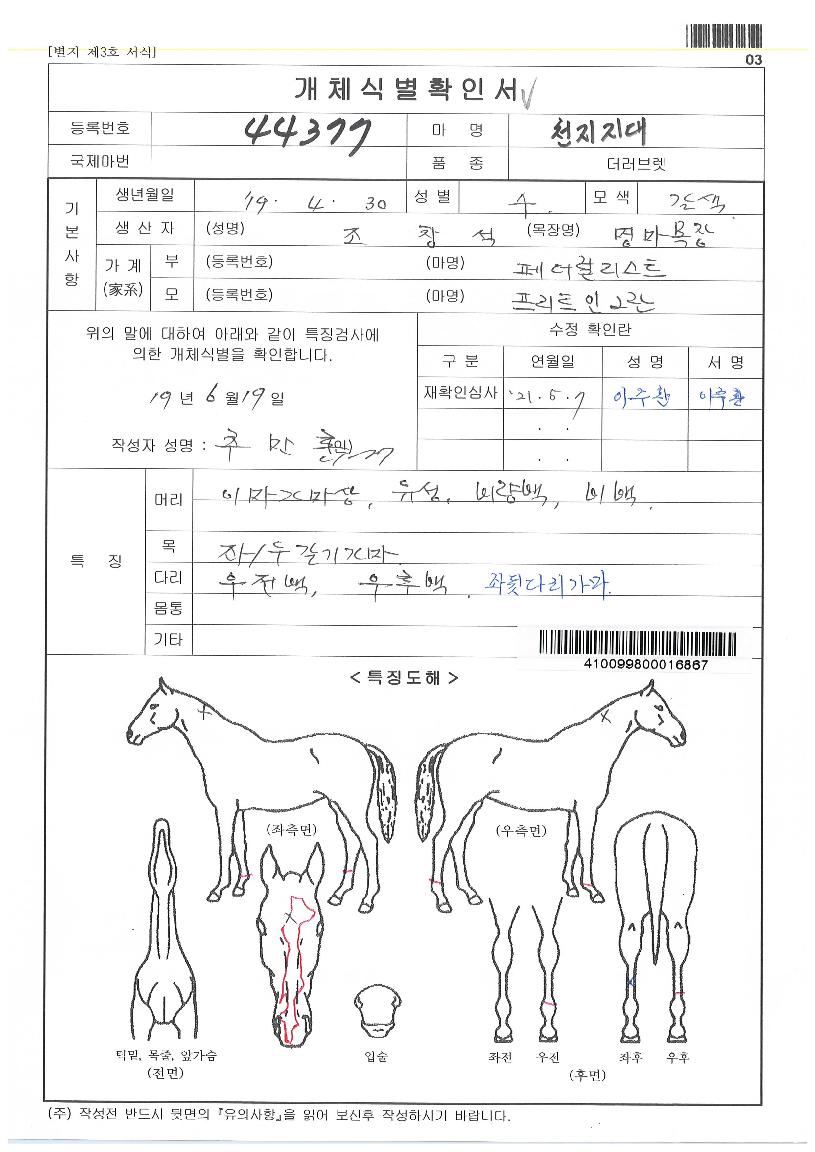 [별지 제3호 서식]
03
개체식별확인서
등록번호 44377 마 명 천지지대
국제마번 품 종 더러브렛
기본사항
생년월일 '19. 4. 30 성 별 수 모 색 갈색
생 산 자 (성명) 조 창 석 (목장명) 명마목장
가 계 (家系)
부 (등록번호) (마명) 페더럴리스트
모 (등록번호) (마명) 프리트인그란
위의 말에 대하여 아래와 같이 특징검사에
의한 개체식별을 확인합니다.
19 년 6 월 19 일
작성자 성명 : 추 만 (인)
수정 확인란
구 분 연월일 성 명 서 명
재확인심사 '21. 5. 7 이주환 이주환
. .
. .
특 징
머리 이마거마상, 유성, 비량백, 비백.
목 좌/우 갈기거마.
다리 우전백, 우후백. 좌뒷다리가마.
몸통
기타
410099800016867
< 특징도해 >
(좌측면) (우측면)
턱밑, 목줄, 앞가슴 입술 좌전 우전 좌후 우후
(전면) (후면)
(주) 작성전 반드시 뒷면의 『유의사항』을 읽어 보신후 작성하시기 바랍니다.